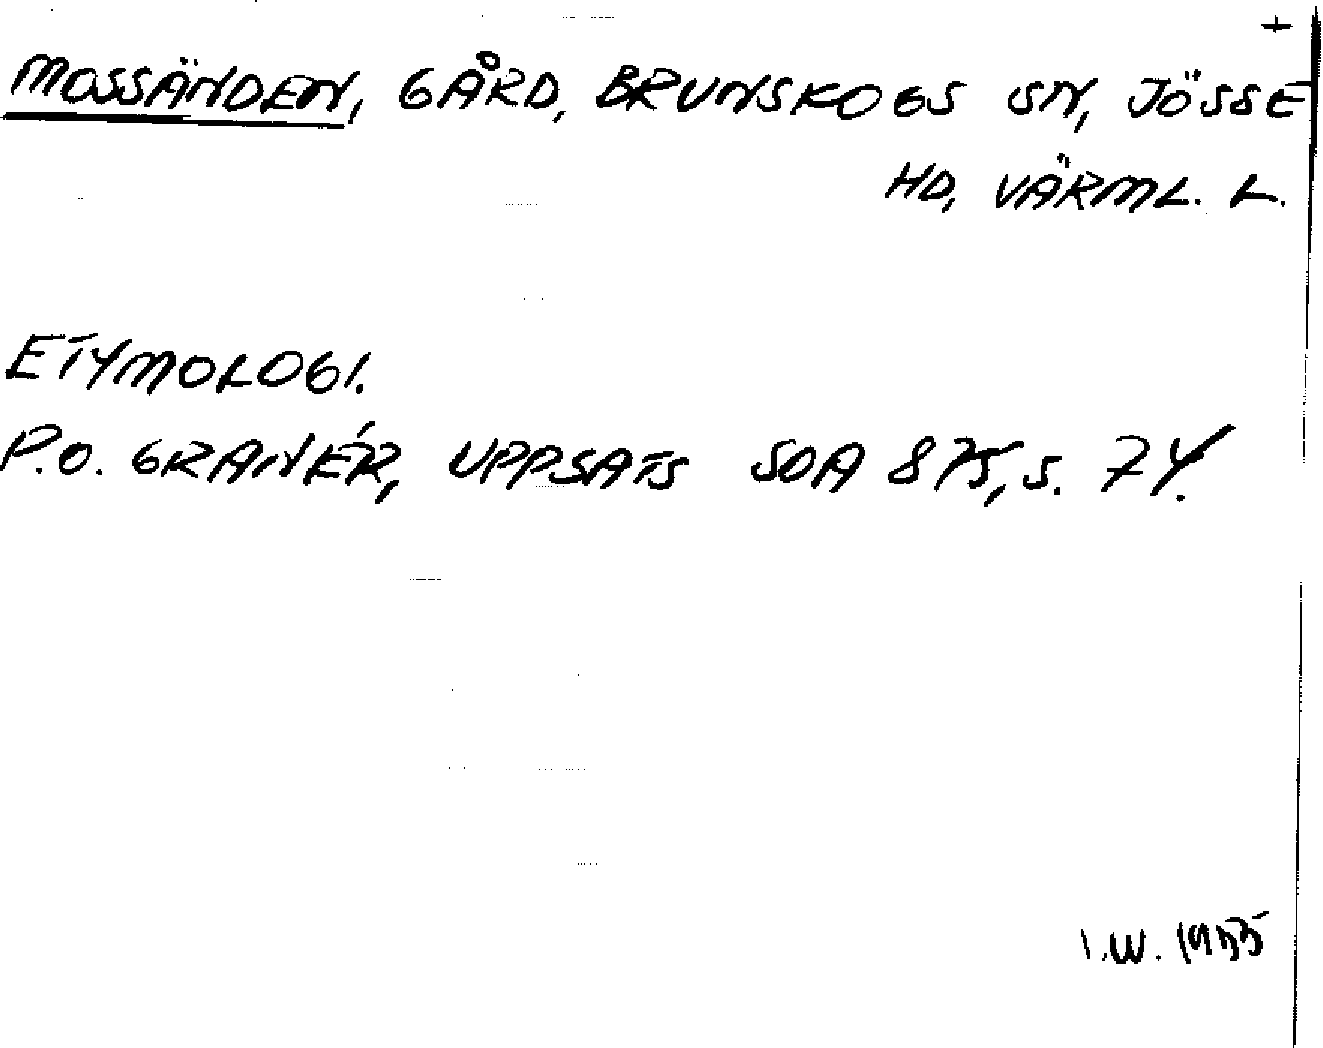 +
MOSSÄNDEN, GÅRD, BRUNSKOGS SN, JÖSSE
HD, VÄRML. L.
ETYMOLOGI.
P.O. GRANÉR, UPPSATS SOA 875, S. 74.
I.W. 1955